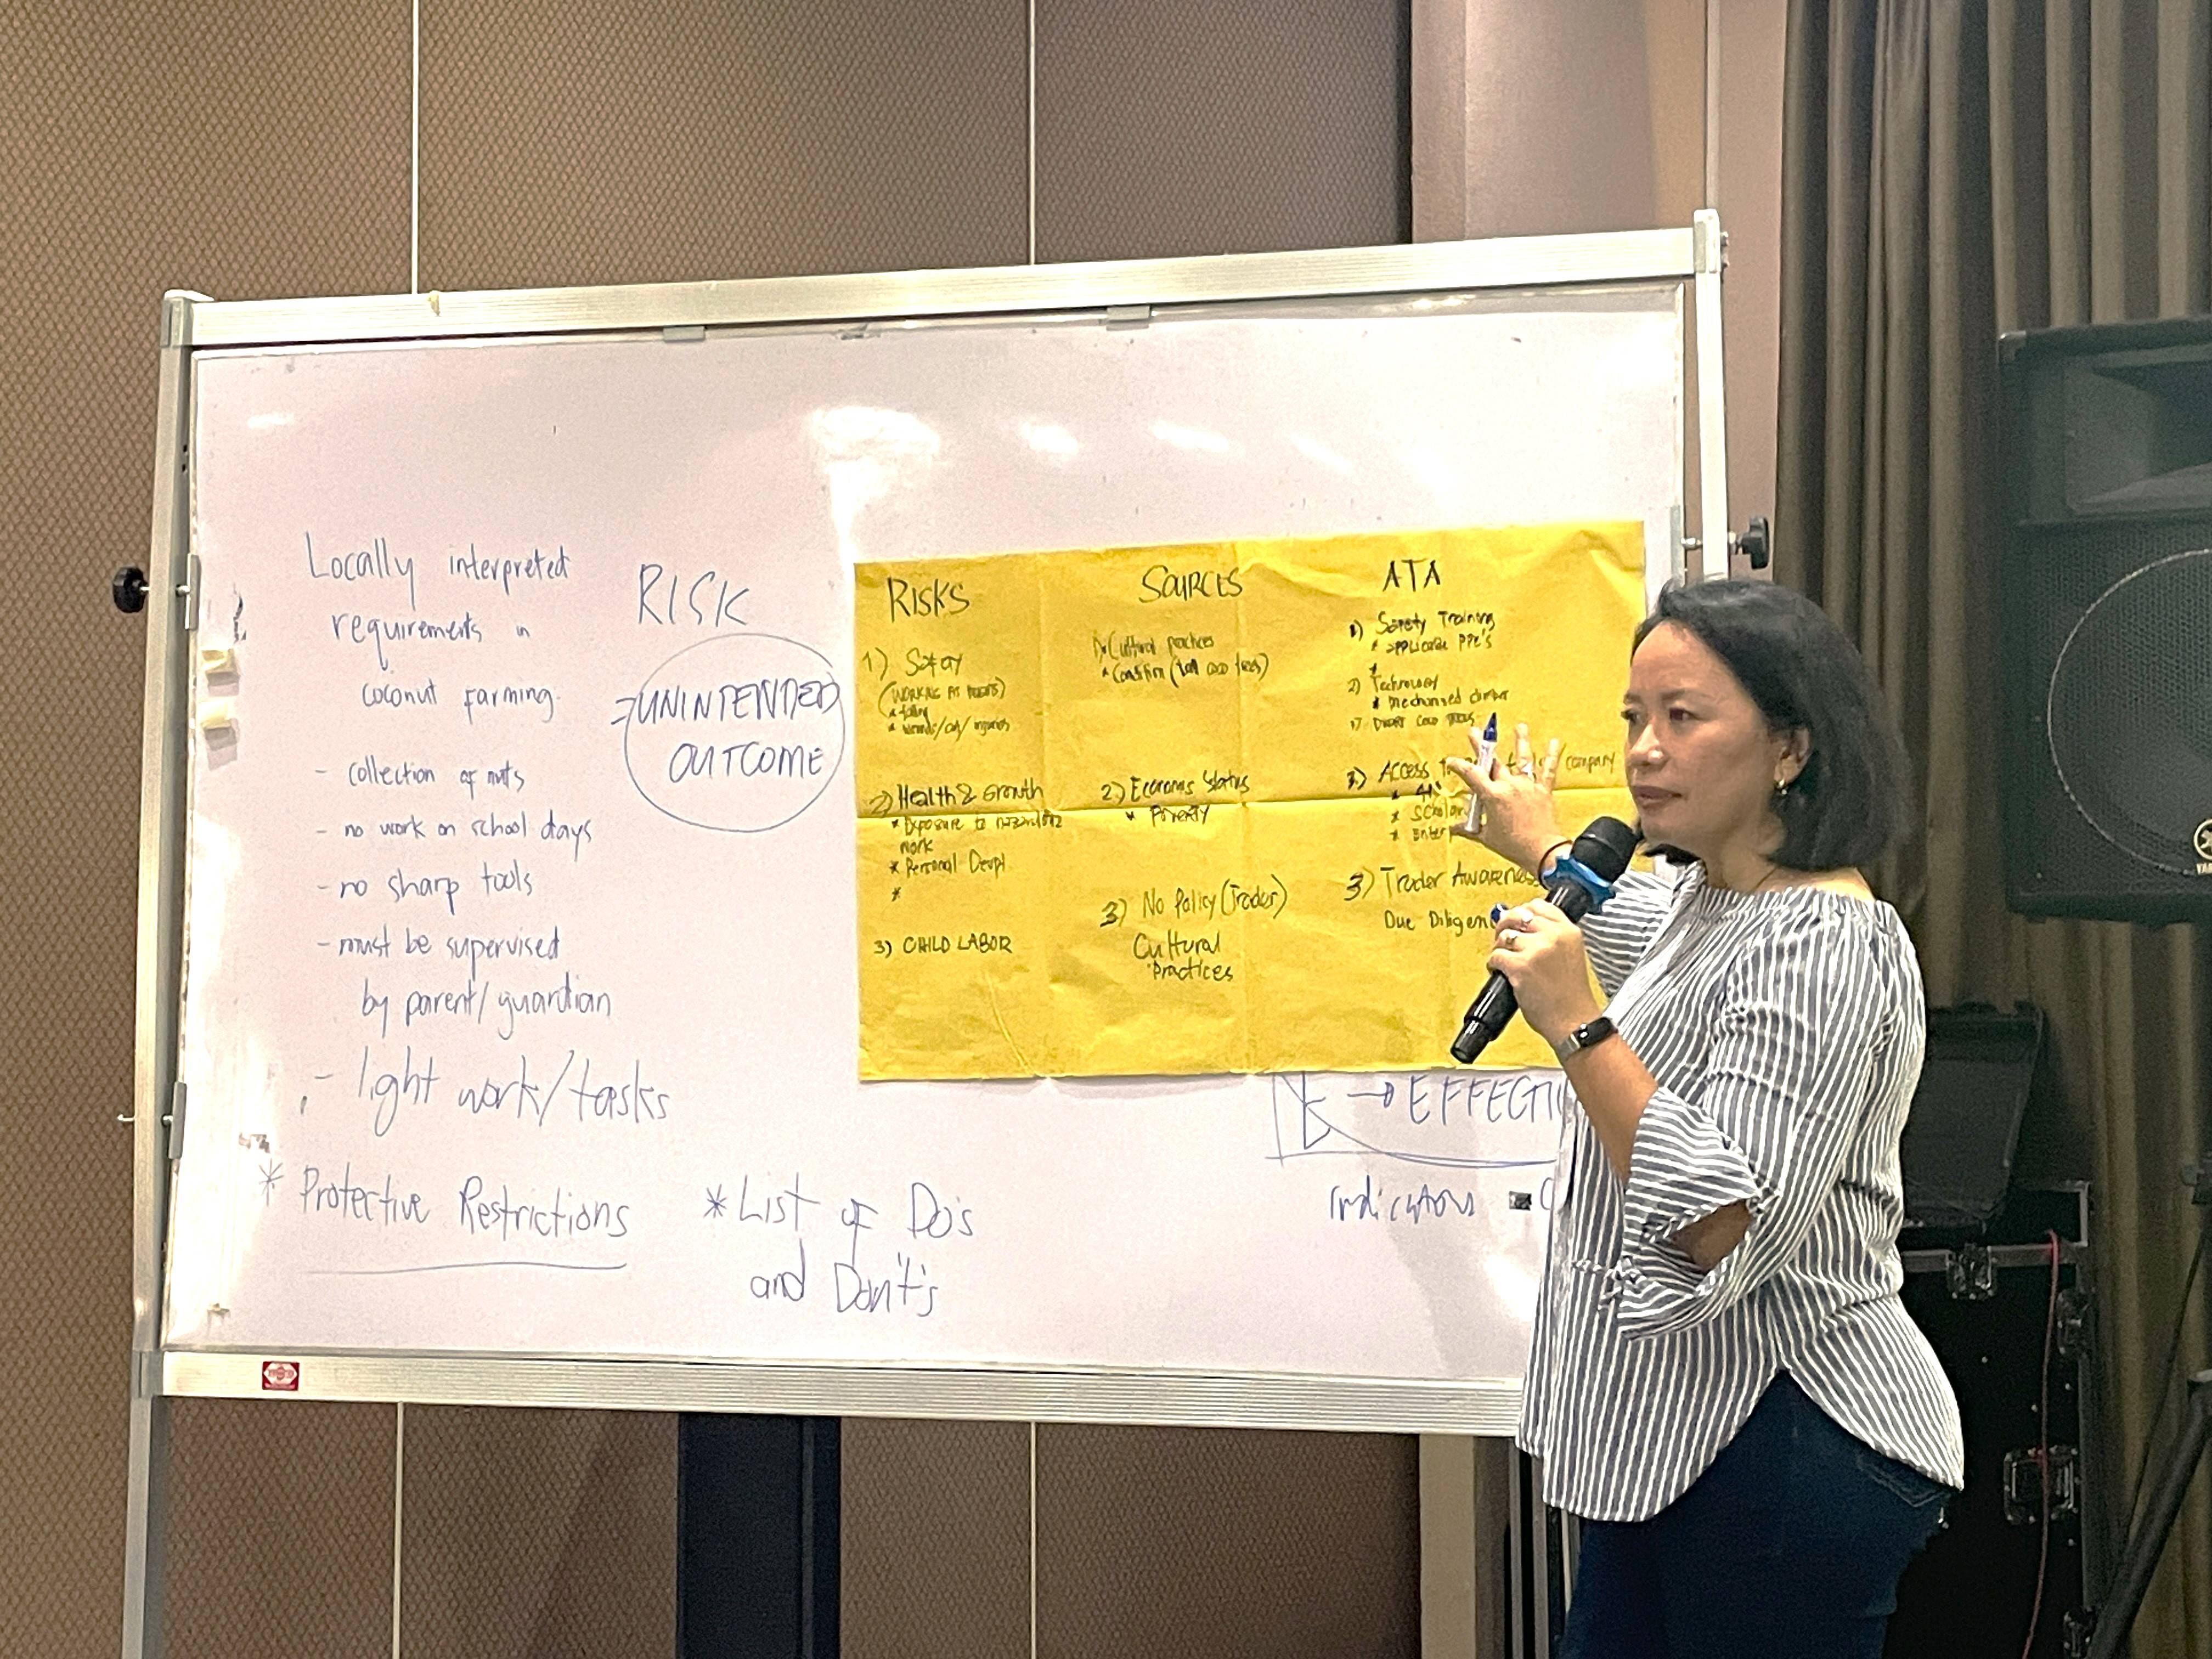 Locally interpreted
requirements in
coconut farming.
- collection of nuts
- no work on school days
- no sharp tools
- must be supervised
by parent/guardian
- light work/tasks
* Protective Restrictions
* List of Do's
and Don't's
RISK
= UNINTENDED
OUTCOME
RISKS
1) Safety
* falling
2) Health & Growth
* Exposure to
work
* Personal Devpl.
*
3) CHILD LABOR
SOURCES
Cultural practices
* Condition (tall coco trees)
2) Economic Status
* Poverty
3) No Policy (Trader)
Cultural
Practices
ATA
1) Safety Training
* applicable PPE's
*
2) Technology
* mechanized climber
Access / company
*
* Schola
* Enter
3) Trader Awareness
Due Diligen
→ EFFECTI
Indicators